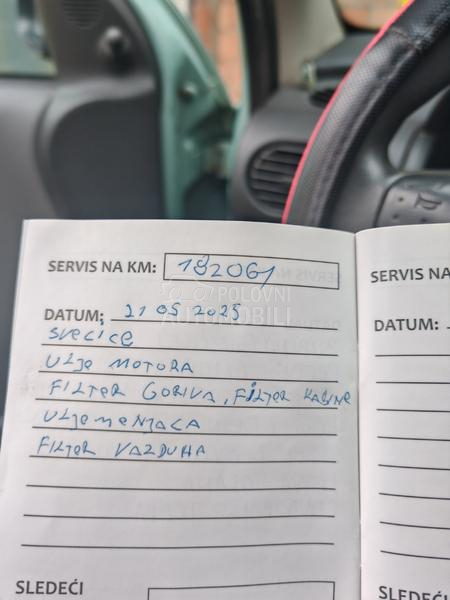 SERVIS NA KM: 182061
DATUM: 21 05 2025
SVECICE
ULJE MOTORA
FILTER GORIVA, FILTER KABINE
ULJE MENJACA
FILTER VAZDUHA
SLEDEĆI
SERVIS NA
DATUM:
SLEDEĆI
POLOVNI
AUTOMOBILI